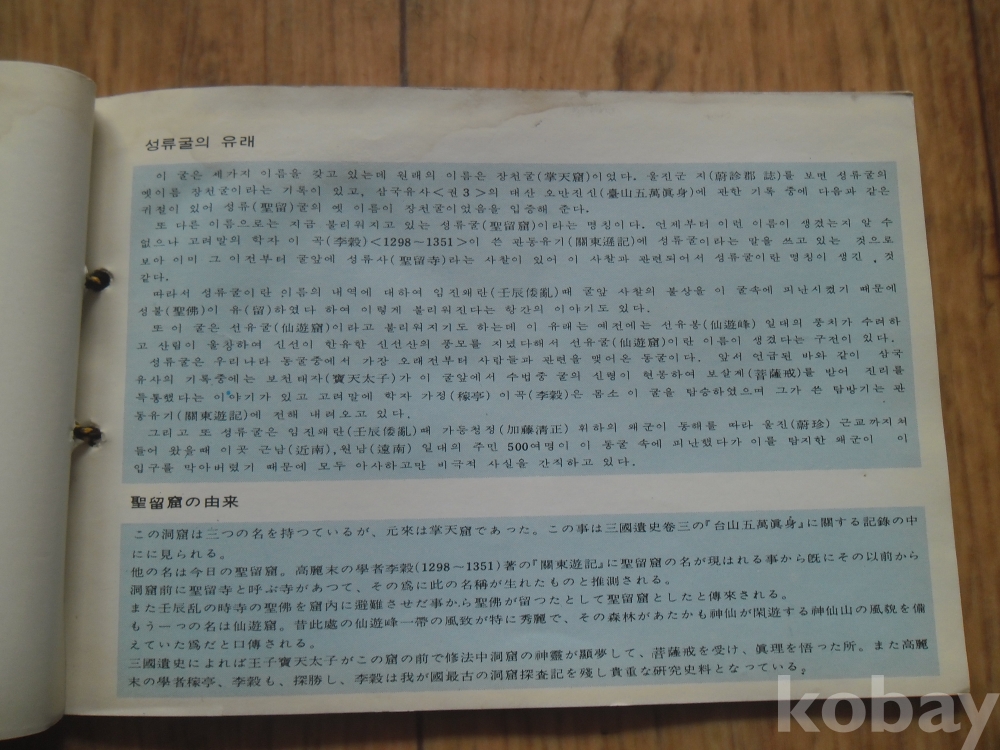 성류굴의 유래
이 굴은 세가지 이름을 갖고 있는데 원래의 이름은 장천굴(掌天窟)이었다. 울진군 지(蔚診郡 誌)를 보면 성류굴의
옛이름 장천굴이라는 기록이 있고, 삼국유사<권3>의 대산 오만진신(臺山五萬眞身)에 관한 기록 중에 다음과 같은
귀절이 있어 성류(聖留)굴의 옛 이름이 장천굴이었음을 입증해 준다.
또 다른 이름으로는 지금 불리워지고 있는 성류굴(聖留窟)이라는 명칭이다. 언제부터 이런 이름이 생겼는지 알 수
없으나 고려말의 학자 이 곡(李穀)<1298~1351>이 쓴 관동유기(關東遊記)에 성류굴이라는 말을 쓰고 있는 것으로
보아 이미 그 이전부터 굴앞에 성류사(聖留寺)라는 사찰이 있어 이 사찰과 관련되어서 성류굴이란 명칭이 생긴 것
같다.
따라서 성류굴이란 이름의 내역에 대하여 임진왜란(壬辰倭亂)때 굴앞 사찰의 불상을 이 굴속에 피난시켰기 때문에
성불(聖佛)이 유(留)하였다 하여 이렇게 불리워진다는 항간의 이야기도 있다.
또 이 굴은 선유굴(仙遊窟)이라고 불리워지기도 하는데 이 유래는 예전에는 선유봉(仙遊峰) 일대의 풍치가 수려하
고 산림이 울창하여 신선이 한유한 신선산의 풍모를 지녔다해서 선유굴(仙遊窟)이란 이름이 생겼다는 구전이 있다.
성류굴은 우리나라 동굴중에서 가장 오래전부터 사람들과 관련을 맺어온 동굴이다. 앞서 언급된 바와 같이 삼국
유사의 기록중에는 보천태자(寶天太子)가 이 굴앞에서 수법중 굴의 신령이 현몽하여 보살계(菩薩戒)를 받어 진리를
득통했다는 이야기가 있고 고려말에 학자 가정(稼亭) 이곡(李穀)은 몸소 이 굴을 탐승하였으며 그가 쓴 탐방기는 관
동유기(關東遊記)에 전해 내려오고 있다.
그리고 또 성류굴은 임진왜란(壬辰倭亂)때 가등청정(加藤清正) 휘하의 왜군이 동해를 따라 울진(蔚珍) 근교까지쳐
들어 왔을때 이곳 근남(近南),원남(遠南) 일대의 주민 500여명이 이 동굴 속에 피난했다가 이를 탐지한 왜군이 이
입구를 막아버렸기 때문에 모두 아사하고만 비극적 사실을 간직하고 있다.
聖留窟の由来
この洞窟は三つの名を持つているが、元來は掌天窟であった。この事は三國遺史卷三の『台山五萬眞身』に關する記錄の中
にに見られる。
他の名は今日の聖留窟。高麗末の學者李穀(1298~1351)著の『關東遊記』に聖留窟の名が現はれる事から旣にその以前から
洞窟前に聖留寺と呼ぶ寺があつて、その爲に此の名稱が生れたものと推測される。
また壬辰乱の時寺の聖佛を窟内に避難させだ事から聖佛が留つたとして聖留窟としたと傳來される。
もう一つの名は仙遊窟。昔此處の仙遊峰一帶の風致が特に秀麗で、その森林があたかも神仙が閑遊する神仙山の風貌を備
えていた爲だと口傳される。
三國遺史によれば王子寶天太子がこの窟の前で修法中洞窟の神靈が顯夢して、菩薩戒を受け、眞理を悟つた所。また高麗
末の學者稼亭、李穀も、探勝し、李穀は我が國最古の洞窟探査記を殘し貴重な研究史料となつている。
kobay